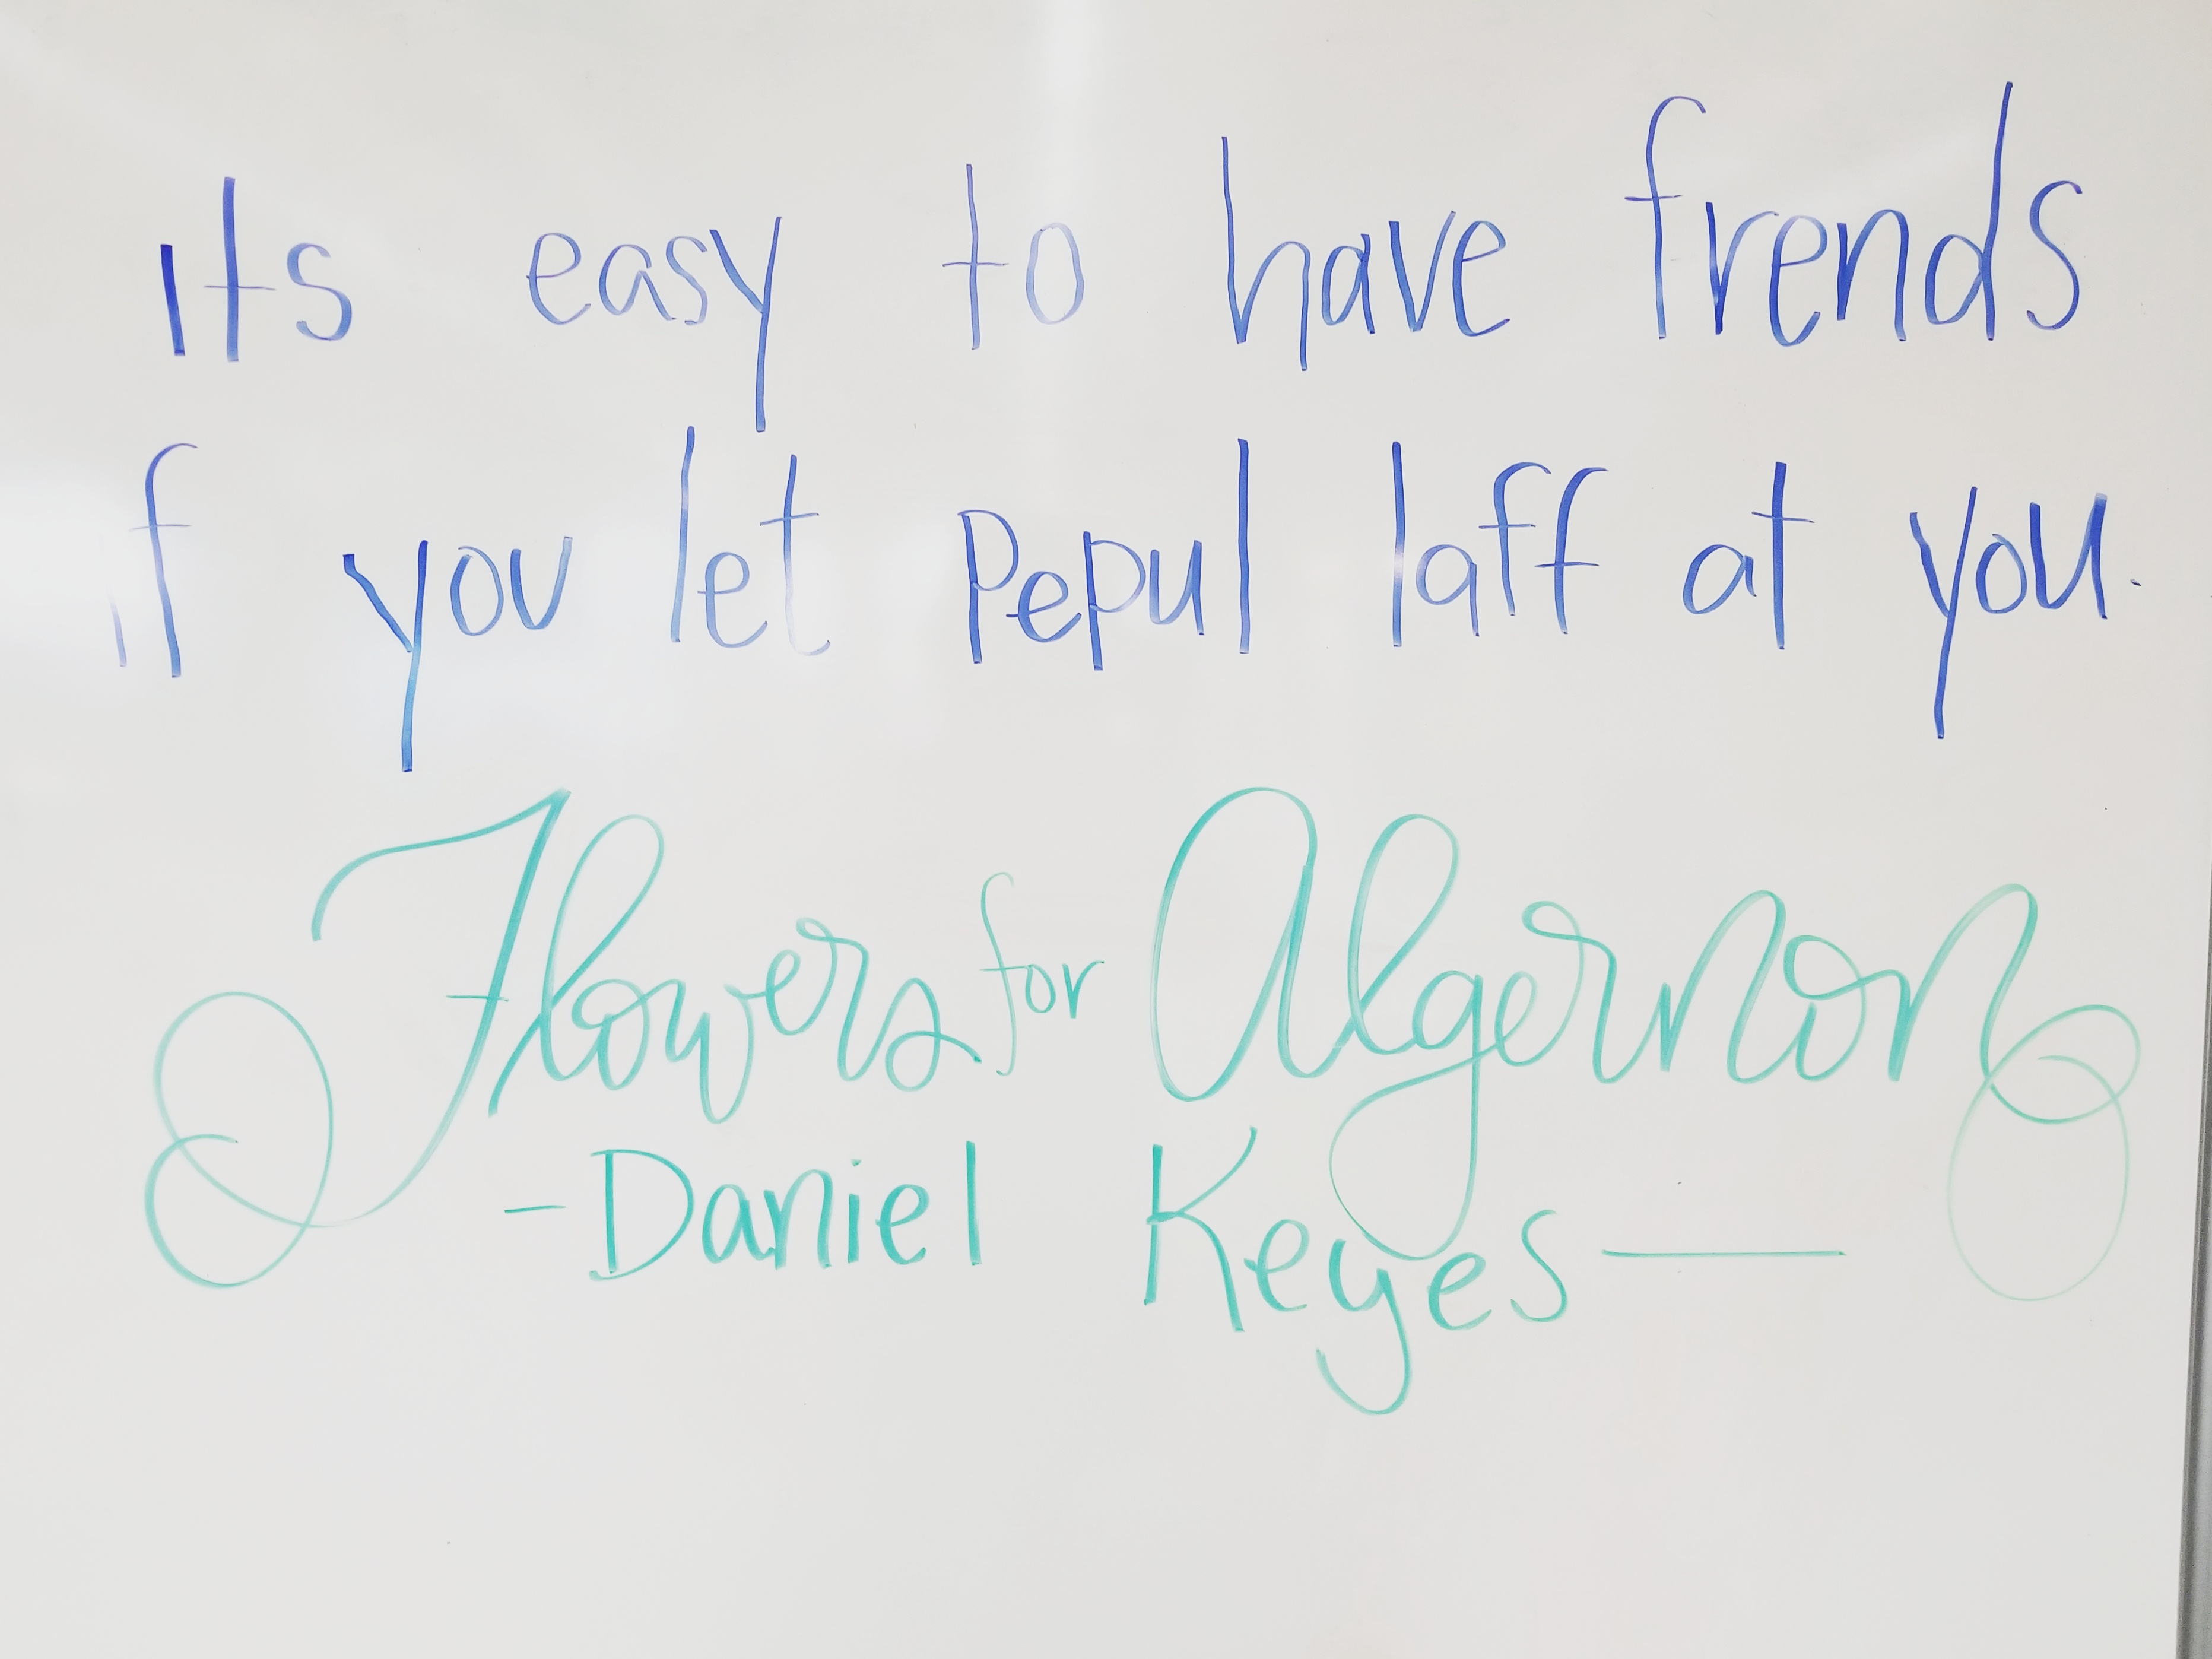 its easy to have frends
if you let pepul laff at you.
Flowers for Algernon
- Daniel Keyes —